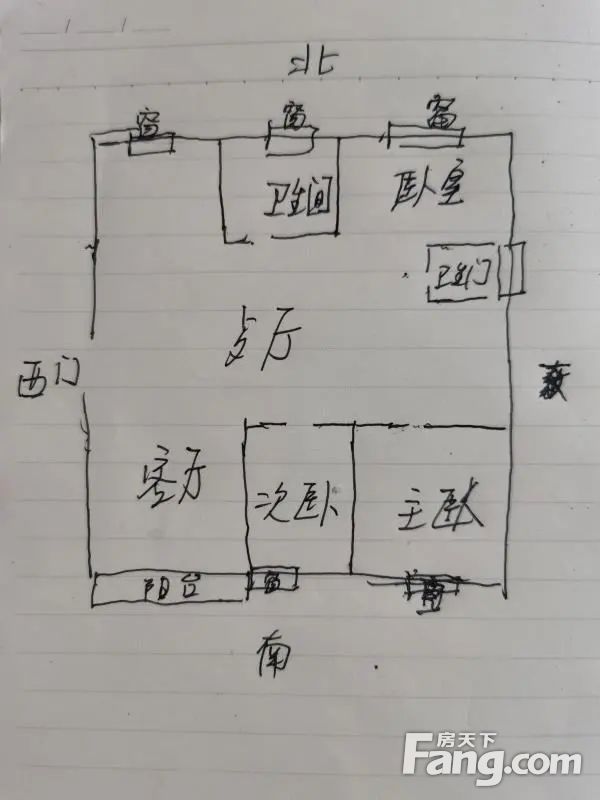 北
窗 窗 窗
卫生间 卧室
卫生门
厅
西门
客厅 次卧 主卧
阳台 窗
南
房天下
Fang.com